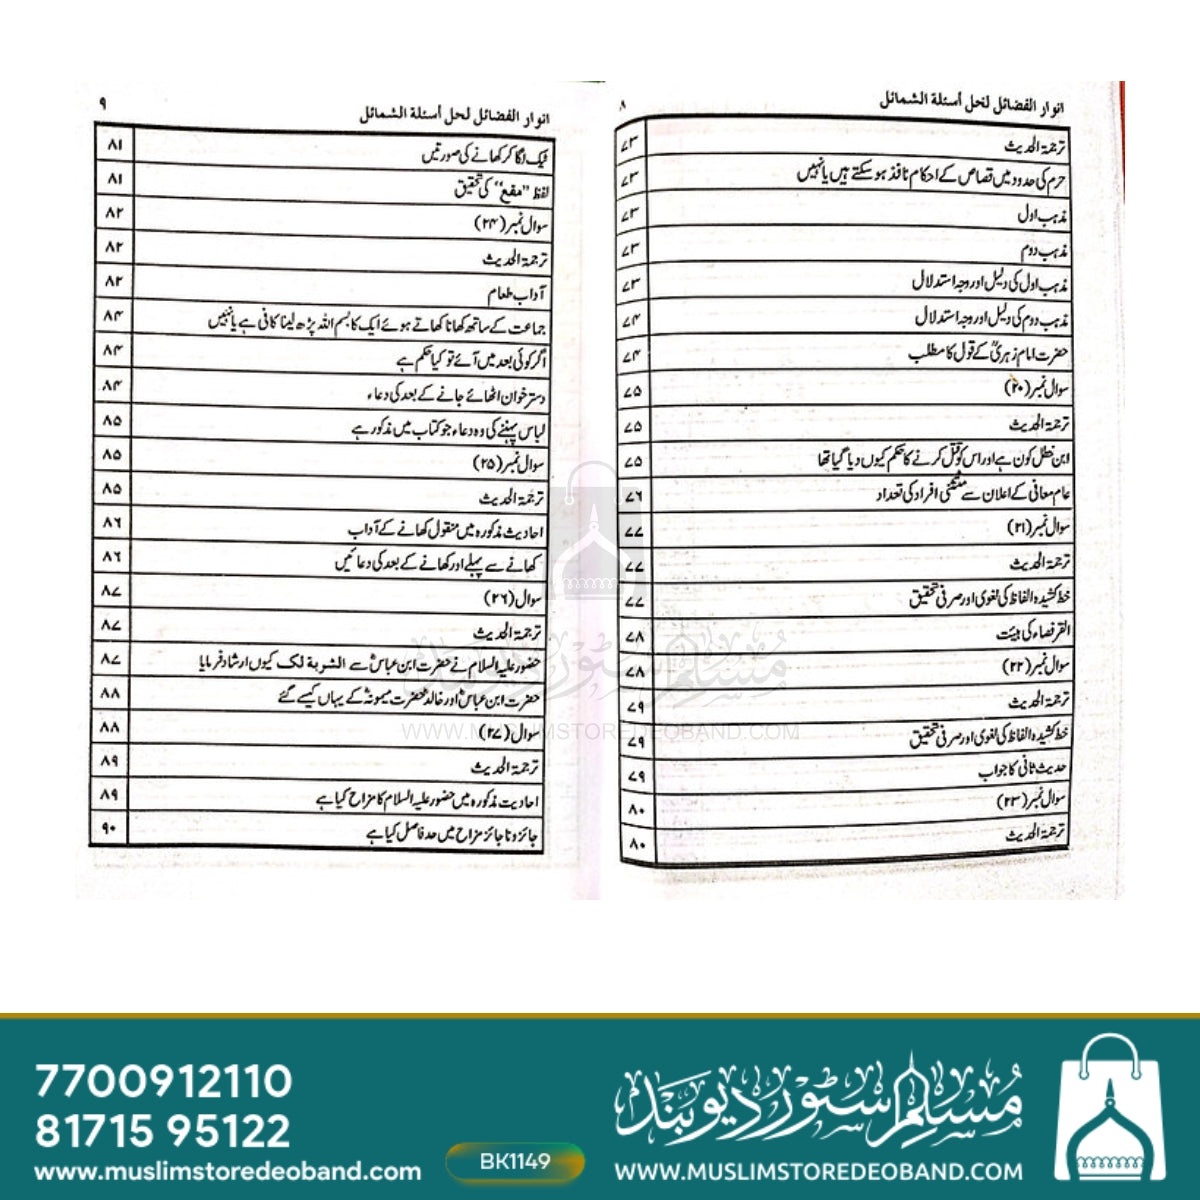 انوار الفضائل لحل أسئلة الشمائل ۸
ترجمۃ الحدیث ۷۳
حرم کی حدود میں قصاص کے احکام نافذ ہو سکتے ہیں یا نہیں ۷۳
مذہب اول ۷۳
مذہب دوم ۷۳
مذہب اول کی دلیل اور وجہ استدلال ۷۳
مذہب دوم کی دلیل اور وجہ استدلال ۷۴
حضرت امام زہریؒ کے قول کا مطلب ۷۴
سوال نمبر (۲۰) ۷۵
ترجمۃ الحدیث ۷۵
ابن خطل کون ہے اور اس کو قتل کرنے کا حکم کیوں دیا گیا تھا ۷۵
عام معافی کے اعلان سے مستثنی افراد کی تعداد ۷۶
سوال نمبر (۲۱) ۷۷
ترجمۃ الحدیث ۷۷
خط کشیدہ الفاظ کی لغوی اور صرفی تحقیق ۷۷
القرفصاء کی ہیئت ۷۸
سوال نمبر (۲۲) ۷۸
ترجمۃ الحدیث ۷۹
خط کشیدہ الفاظ کی لغوی اور صرفی تحقیق ۷۹
حدیث ثانی کا جواب ۷۹
سوال نمبر (۲۳) ۸۰
ترجمۃ الحدیث ۸۰
انوار الفضائل لحل أسئلة الشمائل ۹
ٹیک لگا کر کھانے کی صورتیں ۸۱
لفظ "مقع" کی تحقیق ۸۱
سوال نمبر (۲۴) ۸۲
ترجمۃ الحدیث ۸۲
آداب طعام ۸۲
جماعت کے ساتھ کھانا کھاتے ہوئے ایک کا بسم اللہ پڑھ لینا کافی ہے یا نہیں ۸۴
اگر کوئی بعد میں آئے تو کیا حکم ہے ۸۴
دسترخوان اٹھائے جانے کے بعد کی دعاء ۸۴
لباس پہننے کی وہ دعاء جو کتاب میں مذکور ہے ۸۵
سوال نمبر (۲۵) ۸۵
ترجمۃ الحدیث ۸۵
احادیث مذکورہ میں منقول کھانے کے آداب ۸۶
کھانے سے پہلے اور کھانے کے بعد کی دعائیں ۸۶
سوال (۲۶) ۸۷
ترجمۃ الحدیث ۸۷
حضور علیہ السلام نے حضرت ابن عباسؓ سے الشربة لک کیوں ارشاد فرمایا ۸۷
حضرت ابن عباسؓ اور خالدؓ حضرت میمونہؓ کے یہاں کیسے گئے ۸۸
سوال (۲۷) ۸۸
ترجمۃ الحدیث ۸۹
احادیث مذکورہ میں حضور علیہ السلام کا مزاح کیا ہے ۸۹
جائز و ناجائز مزاح میں حد فاصل کیا ہے ۹۰
مسلم سٹور دیوبند
WWW.MUSLIMSTOREDEOBAND.COM
7700912110
81715 95122
www.muslimstoredeoband.com
BK1149
مسلم سٹور دیوبند
WWW.MUSLIMSTOREDEOBAND.COM